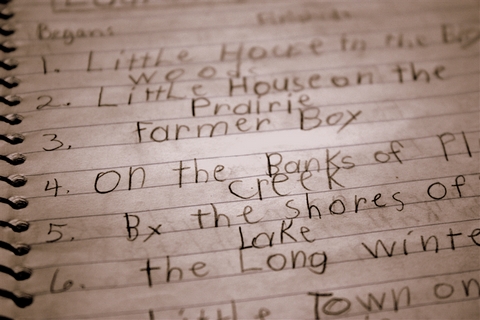 Began
1. Little House in the Big
woods
2. Little House on the
Prairie
3. Farmer Boy
4. On the Banks of Pl
Creek
5. By the Shores of
Lake
6. the Long Winte
Little Town on